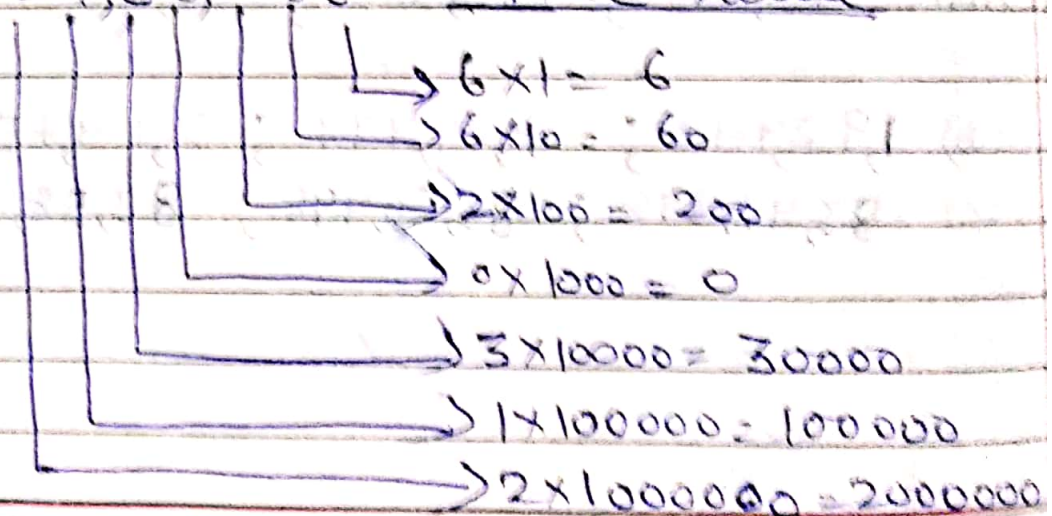 6 × 1 = 6
6 × 10 = 60
2 × 100 = 200
0 × 1000 = 0
3 × 10000 = 30000
1 × 100000 = 100000
2 × 1000000 = 2000000